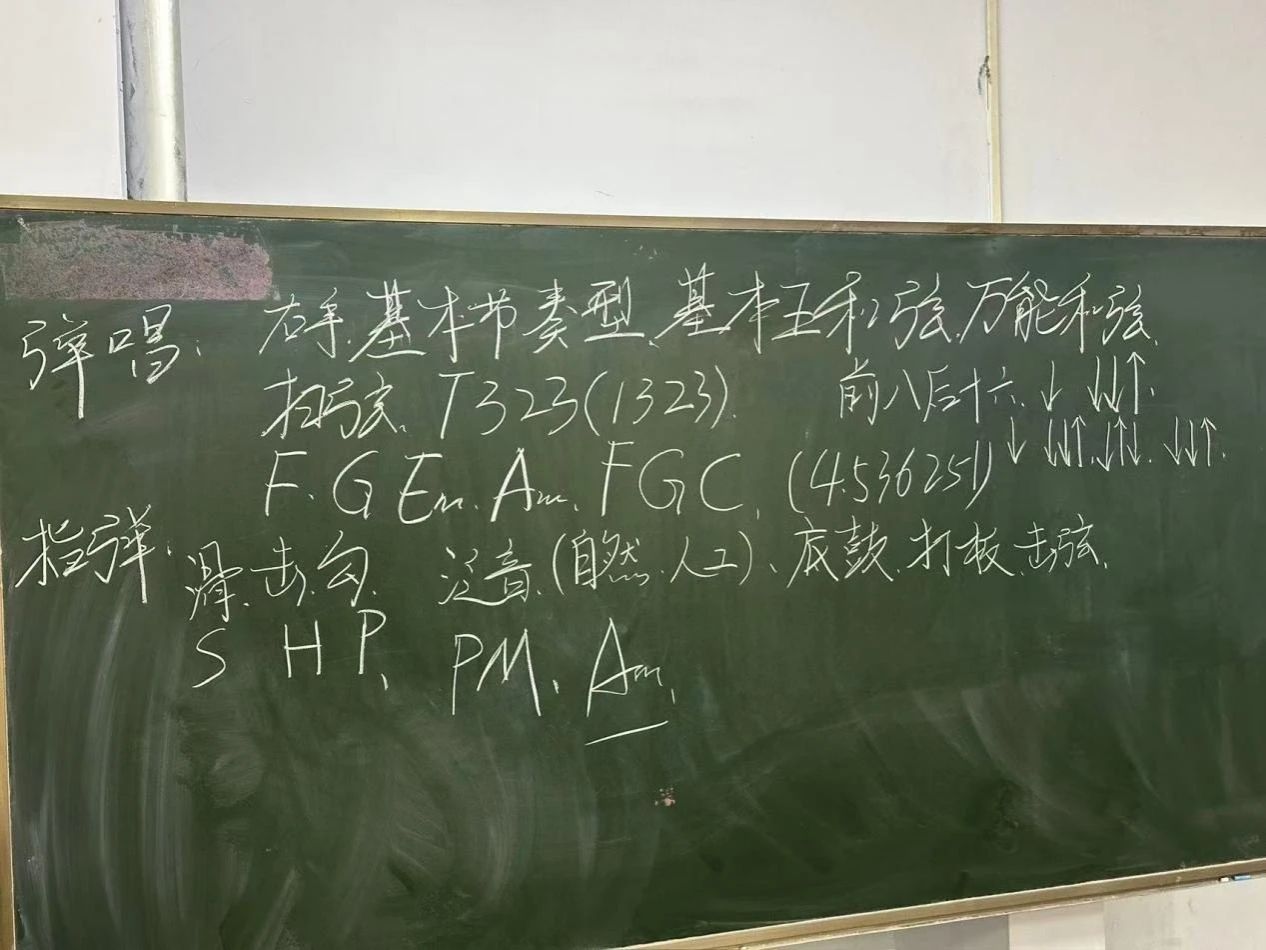 弹唱: 右手、基本节奏类型、基本五和弦、万能和弦、
扫弦、T323(1323). 前八后十六、↓ ↓↓↑.
F、G Em、Am、FGC、(4536251) ↓ ↓↓↑.↓↑↓. ↓↓↑.
指弹: 滑、击、勾、 泛音、(自然、人工)、底鼓、打板、击弦、
S H P、 PM、Am、